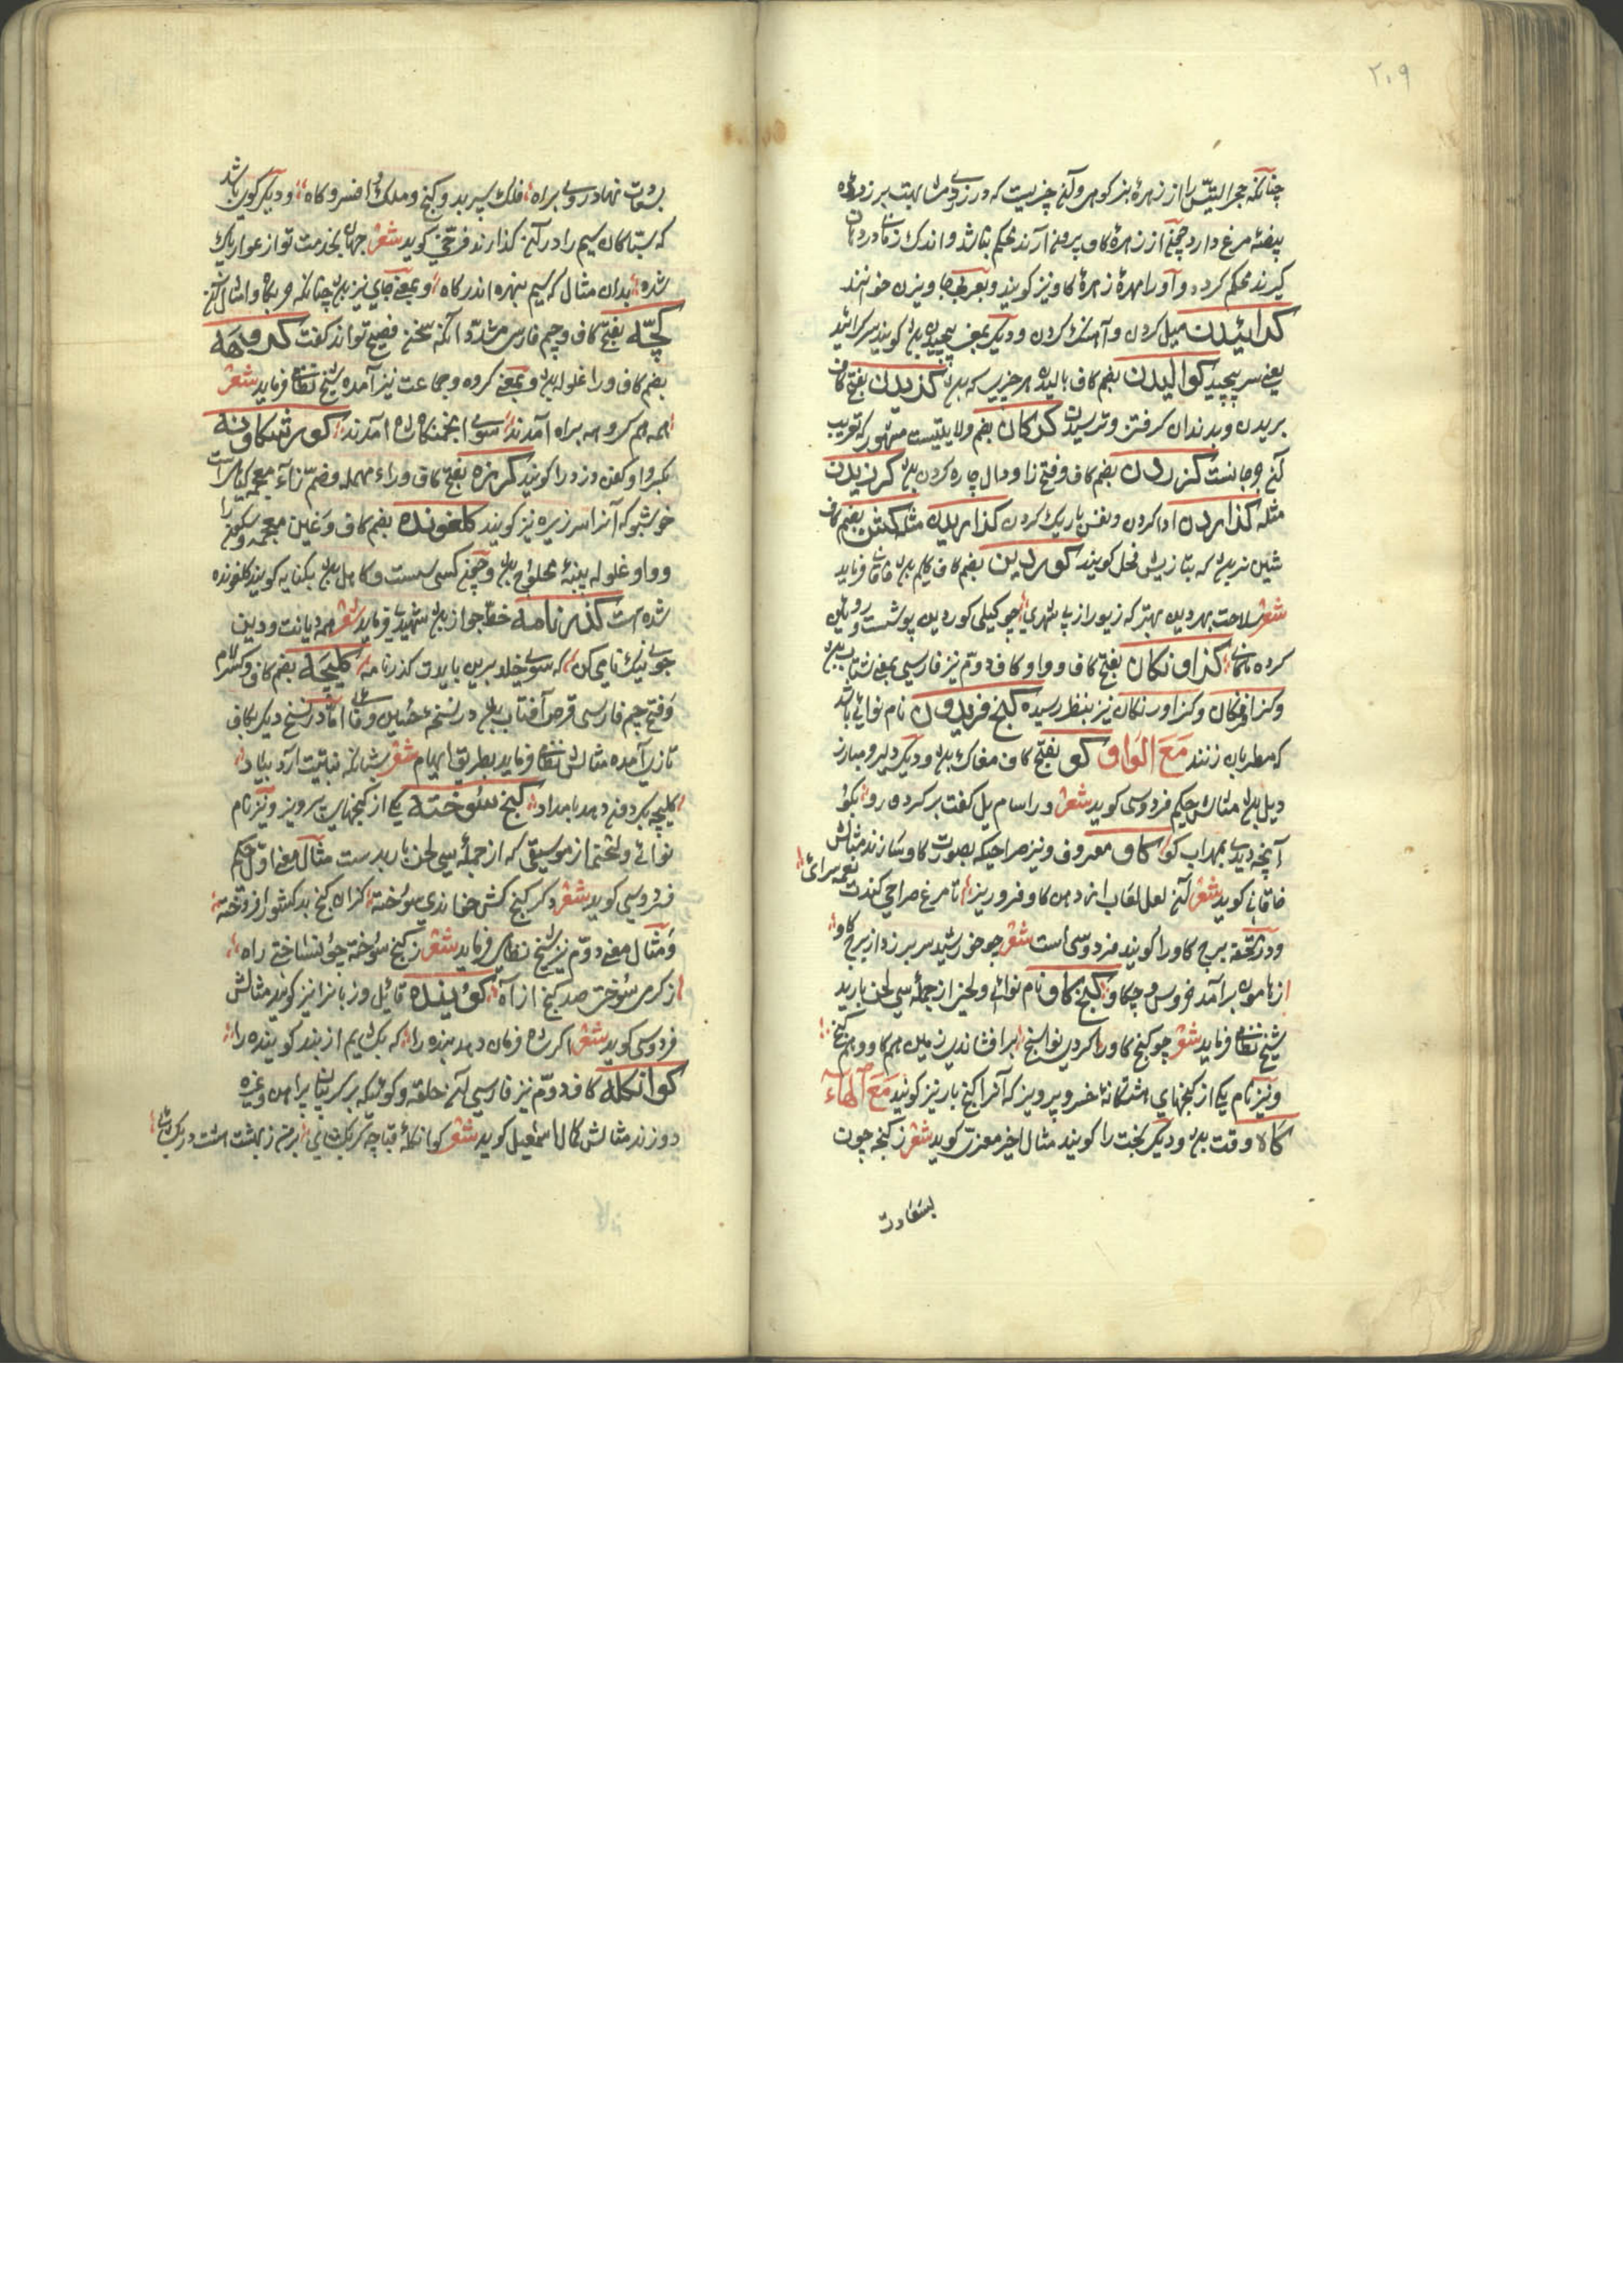 ۲۰۹
چنانکه حجر التیس را از زهرهٔ بز کوهی و آن چیزیست که در زردی مشابهت برزدهٔ
بیضهٔ مرغ دارد چون از زهرهٔ کاو بیرون آرند محکم نباشد و اندک زمانی در دهان
کیرند محکم کردد و آنرا مهرهٔ زهرهٔ کاو نیز کویند و بعربی جاویزن خوانند
کرائیدن میل کردن و آهنک کردن و دیکر بمعنی پیچیدن بود کویند سر کرائید
یعنی سر پیچید کوالیدن بضم کاف بالیدن هر چیزیست که بود کزیدن بفتح کاف
بریدن و بدندان کرفتن و ترسیدن کرکان بضم ولایتیست مشهور که تعریب
آن جرجانست کزردن بضم کاف و فتح زا و دال چاره کردن بود کرزیدن
مثله کذاردن ادا کردن و نقش باریک کردن کذاریدن مثله کشن بضم کاف
شین نر بود که بتازیش فحل کویند کوردین بضم کاف کلیم بود خاقانی فرماید
شعر سلاحت بهر دین بهتر که زیور از پی شهری چو کیلی کوردین پوشست روئین
کرده ماکانی کزاونکان بفتح کاف و واو و کاف دوم نیز فارسی بمعنی شتاب بود
و کزافکان و کزاورنکان نیز بنظر رسیده کنج فریدون نام نوائی باشد
که مطربان زنند مَعَ الوَاو کو بفتح کاف مغاک بود و دیکر دلیر و مبارز
دیل بود مثالش حکیم فردوسی کوید شعر ورا سام یل کفت برکرد و رو بکو
آنچه دیدی بمهراب کو کاو معروف و نیز صراحیکه بصورت کاو سازند مثالش
خاقانی کوید شعر آن لعل لعاب از دهن کاو فرو ریز تا مرغ صراحی کندت نغمه سرائی
و در تحفه برج کاو را کویند فردوسی است شعر چو خورشید سر برزد از برج کاو
ز هامون برآمد خروس چکاو کنج کاو نام نوائی و لحن از جملهٔ سی لحن باربد
شیخ نظامی فرماید شعر چو کنج کاو را کردی نواسنج برافشاندی زمین هم کاو و هم کنج
و نیز نام یکی از کنجهای هشتکانهٔ خسرو پرویز که آنرا کنج بار نیز کویند مَعَ الهَاء
کاه وقت بود و دیکر تخت را کویند مثال اخیر معزی کوید شعر ز کنجه چون
بسعادت
بسعادت نهاد روی براه فلک سپرد بدو کنج و ملک و افسر و کاه و دیکر کوره باشد
که سباکان سیم را در آن کذارند فرخی کوید شعر جهان بخدمت تو از عوار پاک
شده بدان مثال که سیم نبهره اندر کاه و بمعنی جای نیز بود چنانکه خرکاه و امثال آن
کچّه بفتح کاف و چیم فارسی مشدد آنکه سخن فصیح نتواند کفت کروهه
بضم کاف و را غلوله بود و بمعنی کروه و جماعت نیز آمده شیخ نظامی فرماید شعر
همه هم کروهه براه آمدند سوی انجمنکاه شاه آمدند کورشکاونه
کبروا و کفن دزد را کویند کرزه بفتح کاف و راء مهمله و ضم زاء معجمه کیاهیست
خوشبو که آنرا سرزیره نیز کویند کلغونده بضم کاف و غین معجمه و سکون را
و واو غلوله پنبهٔ محلوج بود و چون کسی سست و کاهل بود بکنایه کویند کلغونده
شده است کذرنامه خط جواز بود شهید فرماید شعر همه دیانت و دین
جوی نیک نامی کن که سوی خلد برین باید کذرنامه کلیچه بضم کاف و کسر لام
و فتح چیم فارسی قرص آفتاب بود در نسخهٔ حسین وفائی اما در نسخ دیکر بکاف
تازی آمده مثالش نظامی فرماید بطریق ایهام شعر شبانکه نباتیت آرد بیاد
کلیچه بکردون دهد بامداد کنج سوخته یکی از کنجهای پرویز و نیز نام
نوائی و لحنی از موسیقی که از جملهٔ سی لحن باربدست مثال معنی اول حکیم
فردوسی کوید شعر دکر کنج کش خواندی سوخته کزان کنج بد کشور افروخته
و مثال معنی دوم نیز شیخ نظامی فرماید شعر ز کنج سوخته چون ساختی راه
ز کرمی سوختی صد کنج از آه کوینده قائل و زبانرا نیز کویند مثالش
فردوسی کوید شعر اکر شاه فرمان دهد بنده را که بکشایم از بند کوینده را
کوانکله کاف دوم نیز فارسی آن حلقه و کوئیکه بر کریبان پیراهن و غیره
دوزند مثالش کمال اسمعیل کوید شعر کوانکلهٔ قباچه